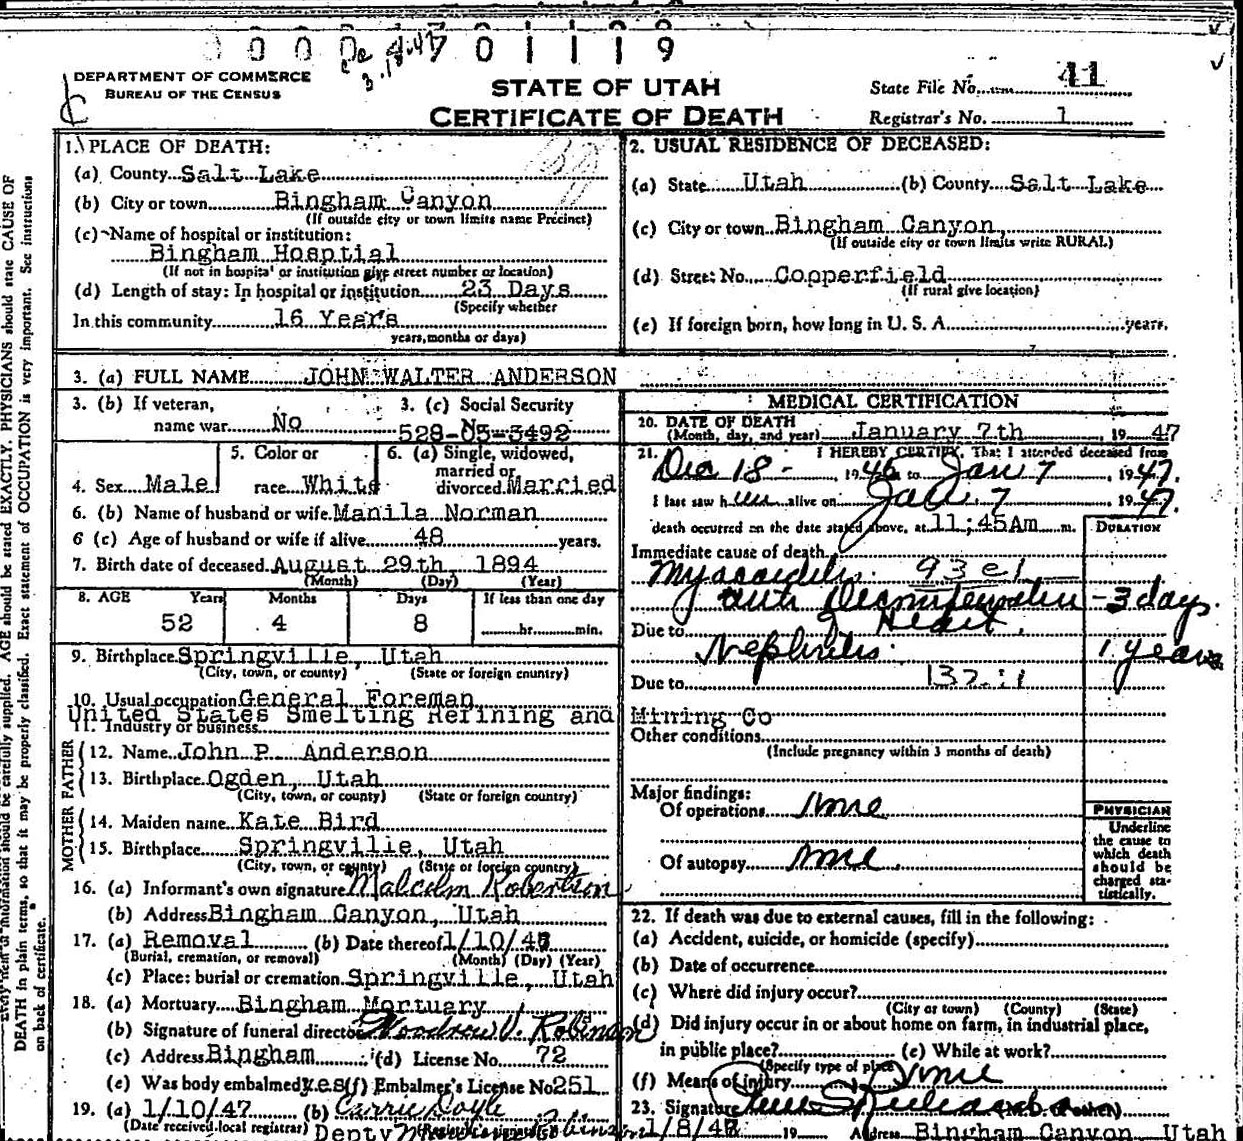 0 0 0 4 7 0 1 1 1 9
DEPARTMENT OF COMMERCE
BUREAU OF THE CENSUS
STATE OF UTAH
CERTIFICATE OF DEATH
State File No. 41
Registrar's No. 1
1. PLACE OF DEATH:
(a) County Salt Lake
(b) City or town Bingham Canyon
(If outside city or town limits name Precinct)
(c) Name of hospital or institution:
Bingham Hosptial
(If not in hospital or institution give street number or location)
(d) Length of stay: In hospital or institution 23 Days
(Specify whether
In this community 16 Years
years, months or days)
2. USUAL RESIDENCE OF DECEASED:
(a) State Utah (b) County Salt Lake
(c) City or town Bingham Canyon,
(If outside city or town limits write RURAL)
(d) Street No. Copperfield
(If rural give location)
(e) If foreign born, how long in U. S. A. years.
3. (a) FULL NAME JOHN WALTER ANDERSON
3. (b) If veteran,
name war No
3. (c) Social Security
No.
528-05-3492
4. Sex Male
5. Color or
race White
6. (a) Single, widowed,
married or
divorced Married
6. (b) Name of husband or wife Manila Norman
6 (c) Age of husband or wife if alive 48 years.
7. Birth date of deceased August 29th, 1894
(Month) (Day) (Year)
8. AGE Years Months Days If less than one day
52 4 8 hr. min.
9. Birthplace Springville, Utah
(City, town, or county) (State or foreign country)
10. Usual occupation General Foreman
United States Smelting Refining and
11. Industry or business
FATHER
12. Name John P. Anderson
13. Birthplace Ogden, Utah
(City, town, or county) (State or foreign country)
MOTHER
14. Maiden name Kate Bird
15. Birthplace Springville, Utah
(City, town, or county) (State or foreign country)
16. (a) Informant's own signature Malcolm Robertson
(b) Address Bingham Canyon, Utah
17. (a) Removal (b) Date thereof 1/10/47
(Burial, cremation, or removal) (Month) (Day) (Year)
(c) Place: burial or cremation Springville, Utah
18. (a) Mortuary Bingham Mortuary
(b) Signature of funeral director Woodrow V. Robinson
(c) Address Bingham (d) License No. 72
(e) Was body embalmed yes (f) Embalmer's License No 251
19. (a) 1/10/47 (b) Carrie Doyle
(Date received local registrar) (Registrar's signature)
Depty
MEDICAL CERTIFICATION
20. DATE OF DEATH
(Month, day, and year) January 7th, 19 47
21. I HEREBY CERTIFY, That I attended deceased from
Dec 18 - 1946 to Jan 7, 1947.
I last saw him alive on Jan. 7 1947.
death occurred on the date stated above, at 11;45Am m.
DURATION
Immediate cause of death
Myocarditis. 93 e1
with Decompensation - 3 days.
of Heart.
Due to
Nephritis. 1 years
Due to 132
Mining Co
Other conditions
(Include pregnancy within 3 months of death)
Major findings:
Of operations none
Of autopsy none.
PHYSICIAN
Underline
the cause to
which death
should be
charged sta-
tistically.
22. If death was due to external causes, fill in the following:
(a) Accident, suicide, or homicide (specify)
(b) Date of occurrence
(c) Where did injury occur?
(City or town) (County) (State)
(d) Did injury occur in or about home on farm, in industrial place,
in public place? (e) While at work?
(Specify type of place)
(f) Means of injury none
23. Signature
1/8/47 19 Address Bingham Canyon, Utah
DEATH in plain terms, so that it may be properly classified. Exact statement of OCCUPATION is very important. See instructions
on back of certificate.
AGE should be stated EXACTLY. PHYSICIANS should state CAUSE OF